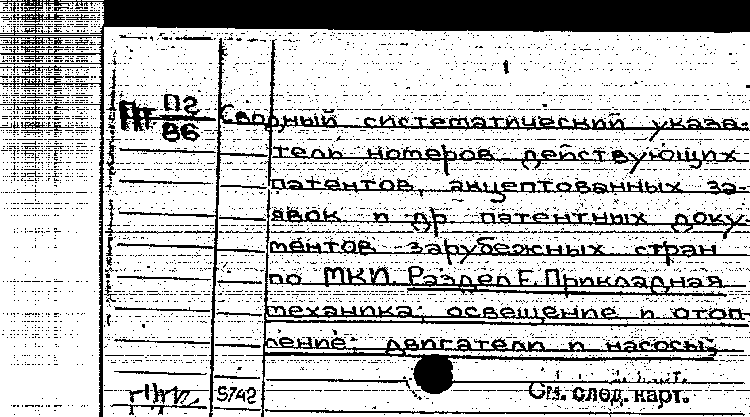 1
Пт П2
В6
Сводный систематический указа-
тель номеров действующих
патентов, акцептованных за-
явок и др. патентных доку-
ментов зарубежных стран
по МКИ. Раздел F. Прикладная
механика; освещение и отоп-
ление; двигатели и насосы
5742
См. след. карт.